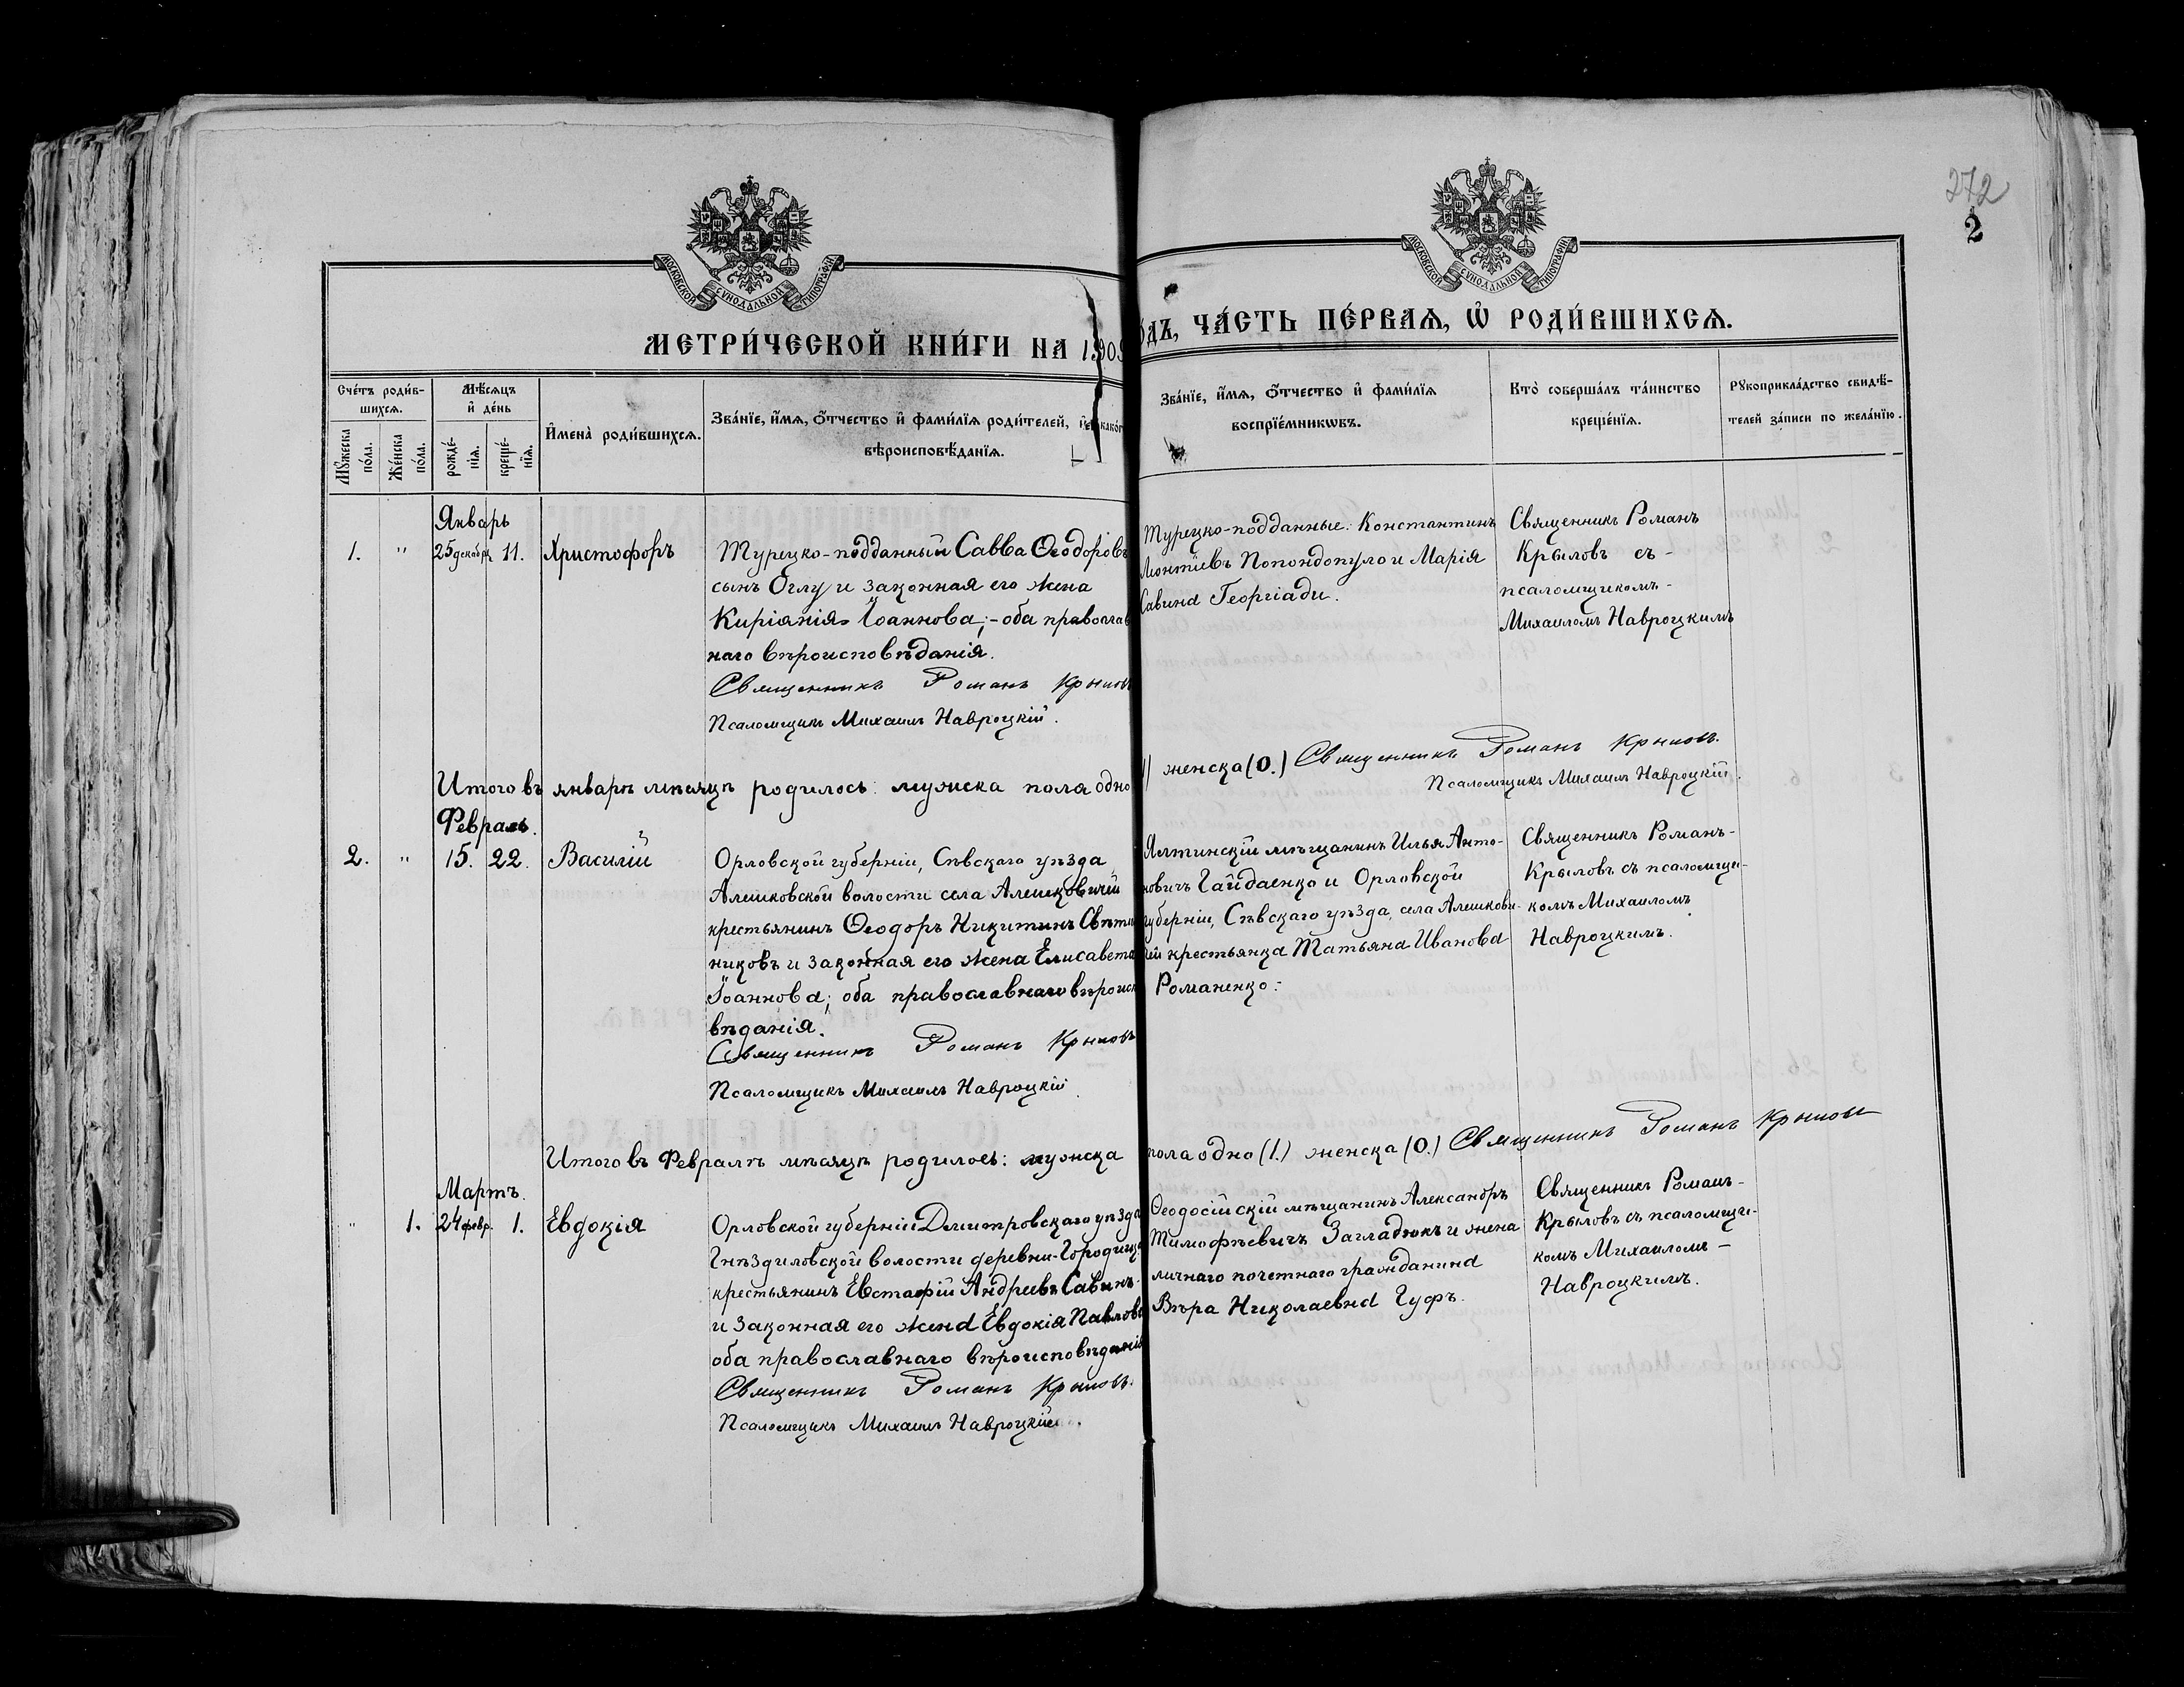 272
2
МОСКОВСКОЙ СѴНОДАЛЬНОЙ ТИПОГРАФІИ
МОСКОВСКОЙ СѴНОДАЛЬНОЙ ТИПОГРАФІИ
МЕТРИ́ЧЕСКОЙ КНИ́ГИ НА 1909
ДЪ, ЧА́СТЬ ПЕ́РВАѦ, Ѡ҆ РОДИ́ВШИХСѦ.
Сче́тъ роди́в-
шихсѧ.
Мꙋ́жеска по́ла.
Же́нска по́ла.
Мѣ́сѧцъ
и҆ де́нь
рожде́-
нїѧ.
креще́-
нїѧ.
И҆мена̀ роди́вшихсѧ.
Зва́нїе, и҆́мѧ, ѻ҆́тчество и҆ фами́лїѧ роди́телей,
вѣроисповѣ́данїѧ.
Зва́нїе, и҆́мѧ, ѻ҆́тчество и҆ фами́лїѧ
воспрїе́мникѡвъ.
Кто̀ соверша́лъ та́инство
креще́нїѧ.
Рꙋкоприкла́дство свидѣ́-
телей за́писи по жела́нїю.
Январь
1. " 25 декабря 11. Христофоръ
Турецко-подданный Савва Ѳеодоровъ
сынъ Оглу и законная его жена
Киріакія Іоаннова;- оба православ
наго вѣроисповѣданія.
Священникъ Романъ Крыловъ
Псаломщикъ Михаилъ Навроцкій.
Турецко-подданные: Константинъ
Попондопуло и Марія
Савина Георгіади.
Священникъ Романъ
Крыловъ съ -
псаломщикомъ -
Михаиломъ Навроцкимъ
Итого въ январѣ мѣсяцѣ родилось: мужска пола одно
1) женска (0.) Священникъ Романъ Крыловъ.
Псаломщикъ Михаилъ Навроцкій.
Февраль.
2. " 15. 22. Василій
Орловской губерніи, Сѣвскаго уѣзда
Алешковской волости села Алешковичй
крестьянинъ Ѳеодоръ Никитинъ Свѣтл
никовъ и законная его жена Елисавета
Іоаннова; оба православнаго вѣроисп
вѣданія.
Священникъ Романъ Крыловъ
Псаломщикъ Михаилъ Навроцкій.
Ялтинскій мѣщанинъ Илья Анто-
новичъ Гайдаенко и Орловской
губерніи, Сѣвскаго уѣзда, села Алешкови-
чй крестьянка Татьяна Иванова
Романенко:
Священникъ Романъ -
Крыловъ съ псаломщи-
комъ Михаиломъ
Навроцкимъ.
Итого въ Февралѣ мѣсяцѣ родилось: мужска
пола одно (1.) женска (0.) Священникъ Романъ Крыловъ
Мартъ.
" 1. 24 февр. 1. Евдокія
Орловской губерніи Дмитровскаго уѣзда
Гнѣздиловской волости деревни-Городища
крестьянинъ Евстафій Андреевъ Савинъ-
и законная его жена Евдокія Павлова
оба православнаго вѣроисповѣданія
Священникъ Романъ Крыловъ.
Псаломщикъ Михаилъ Навроцкій.
Ѳеодосійскій мѣщанинъ Александръ
Тимофѣевичъ Загладюкъ и жена
личнаго почетнаго гражданина
Вѣра Николаевна Гуфъ.
Священникъ Романъ -
Крыловъ съ псаломщи-
комъ Михаиломъ -
Навроцкимъ.